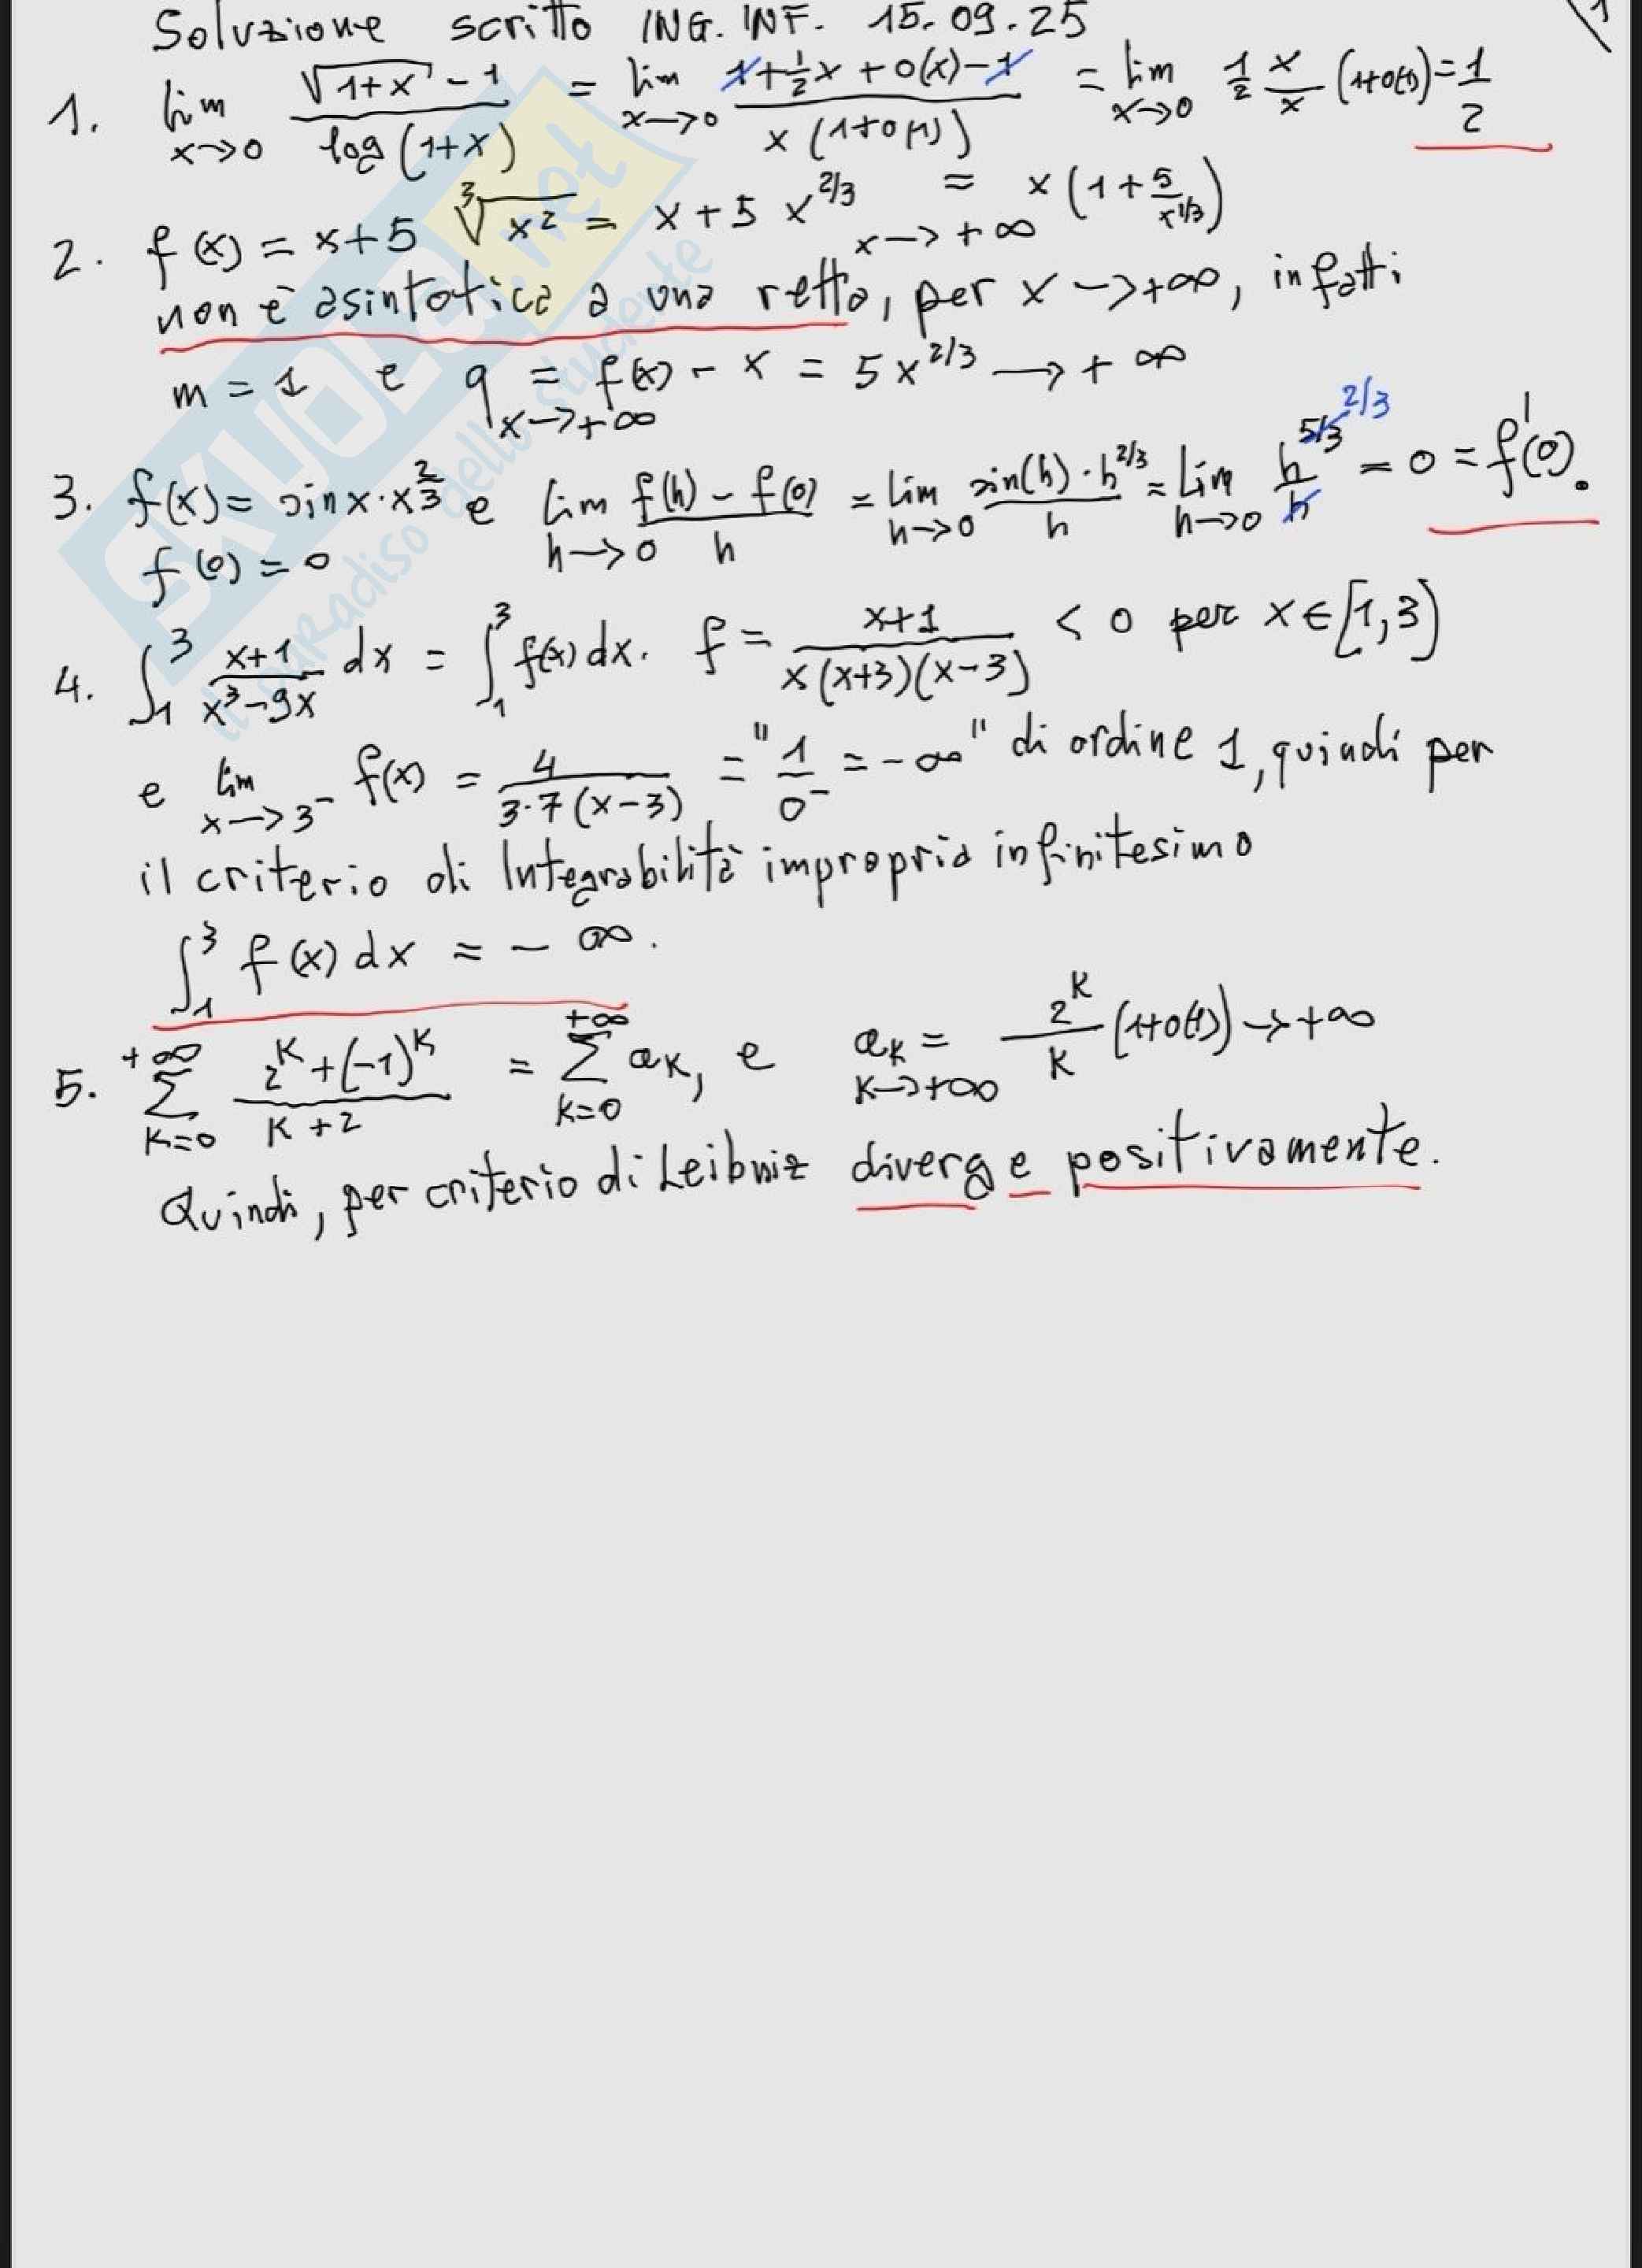 Soluzione scritto ING. INF. 15.09.25
1. lim x→0 (√(1+x) - 1)/(log(1+x)) = lim x→0 (1+½x+o(x)-1)/(x(1+o(1))) = lim x→0 ½ x/x (1+o(1)) = 1/2
2. f(x) = x+5 ∛x² = x+5 x^(2/3) = x→+∞ x(1+5/x^(1/3))
non è asintotica a una retta, per x→+∞, infatti
m = 1 e q = x→+∞ f(x) - x = 5x^(2/3) → +∞
3. f(x) = sinx·x^(2/3) e lim h→0 (f(h) - f(0))/h = lim h→0 (sin(h)·h^(2/3))/h = lim h→0 h^(5/3)/h 2/3 = 0 = f'(0).
f(0) = 0
4. ∫₁³ (x+1)/(x³-9x) dx = ∫₁³ f(x) dx. f = (x+1)/(x(x+3)(x-3)) < 0 per x∈[1,3)
e lim x→3⁻ f(x) = 4/(3·7(x-3)) = "1/0⁻ = -∞" di ordine 1, quindi per
il criterio di Integrabilità impropria infinitesimo
∫₁³ f(x) dx = - ∞.
5. +∞ Σ k=0 (2^k+(-1)^k)/(k+2) = +∞ Σ k=0 a_k, e a_k = k→+∞ 2^k/k (1+o(1)) → +∞
Quindi, per criterio di Leibniz diverge positivamente.
SKUOLA.net
il paradiso dello studente